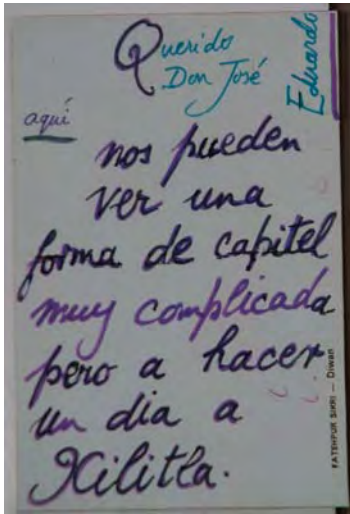 Querido
Don José
Eduardo
aquí
nos pueden
ver una
forma de capitel
muy complicada
pero a hacer
un dia a
Xilitla.
FATEHPUR SIKRI — Diwan